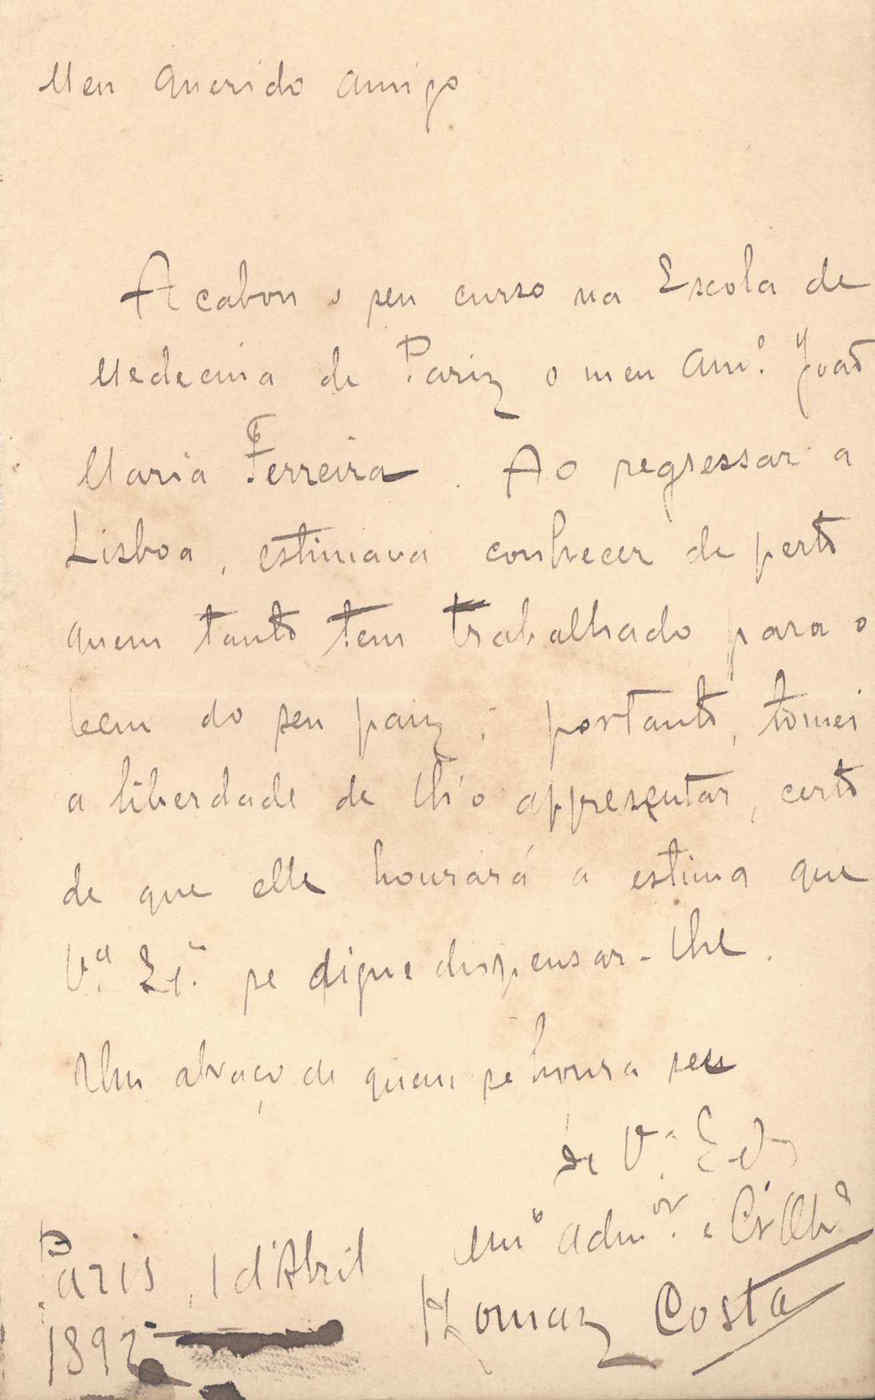 Meu querido amigo
Acabou o seu curso na Escola de
Medecina de Pariz o meu Am.º João
Maria Ferreira. Ao regressar a
Lisboa, estimava conhecer de perto
quem tanto tem trabalhado para o
bem do seu paiz; portanto, tomei
a liberdade de lh'o appresentar, certo
de que elle honrará a estima que
V.ª Ex.ª se digne dispensar-lhe.
Um abraço de quem se honra ser
de V.ª
Mm.º adm.or e Cr.º Obr.º
Paris, 1 d'Abril
Thomaz Costa
1892